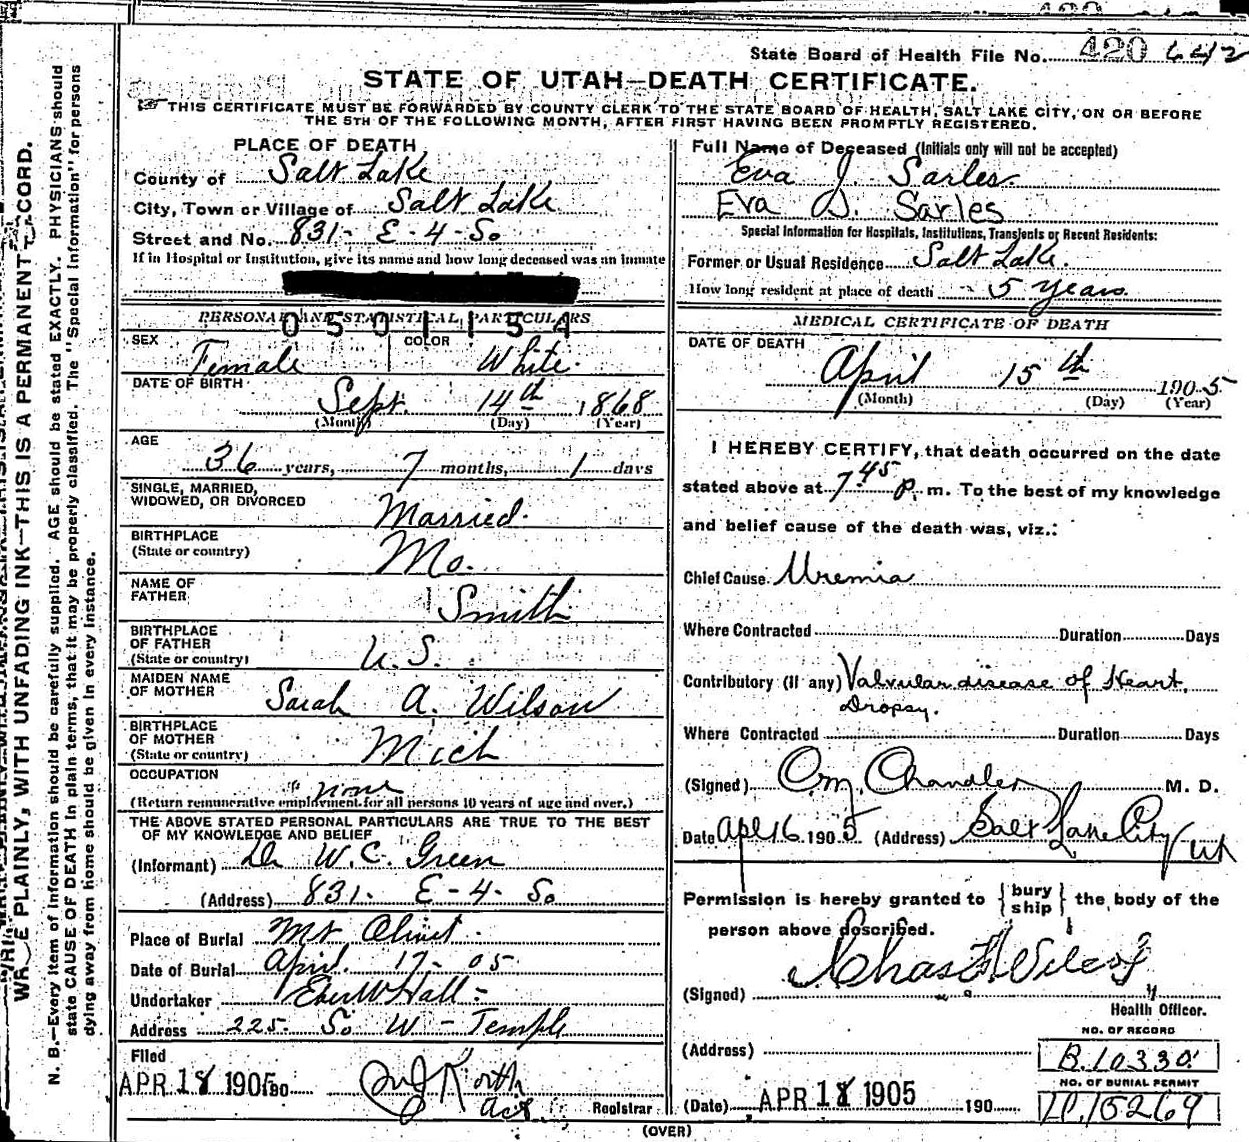 State Board of Health File No. 420 642
STATE OF UTAH—DEATH CERTIFICATE.
THIS CERTIFICATE MUST BE FORWARDED BY COUNTY CLERK TO THE STATE BOARD OF HEALTH, SALT LAKE CITY, ON OR BEFORE
THE 5TH OF THE FOLLOWING MONTH, AFTER FIRST HAVING BEEN PROMPTLY REGISTERED.
PLACE OF DEATH
County of Salt Lake
City, Town or Village of Salt Lake
Street and No. 831- E-4-So
If in Hospital or Institution, give its name and how long deceased was an inmate
PERSONAL AND STATISTICAL PARTICULARS
0501154
SEX Female COLOR White.
DATE OF BIRTH
Sept. 14th 1868
(Month) (Day) (Year)
AGE
36 years, 7 months, 1 days
SINGLE, MARRIED,
WIDOWED, OR DIVORCED Married.
BIRTHPLACE
(State or country) Mo.
NAME OF
FATHER Smith
BIRTHPLACE
OF FATHER
(State or country) U.S.
MAIDEN NAME
OF MOTHER Sarah A. Wilson
BIRTHPLACE
OF MOTHER
(State or country) Mich
OCCUPATION none
(Return remunerative employment for all persons 10 years of age and over.)
THE ABOVE STATED PERSONAL PARTICULARS ARE TRUE TO THE BEST
OF MY KNOWLEDGE AND BELIEF
(Informant) Dr W.C. Green
(Address) 831- E-4-So
Place of Burial Mt Olivet.
Date of Burial April. 17-05
Undertaker Eber W Hall-
Address 225. So W-Temple
Filed
APR 18 1905 190
Registrar
Full Name of Deceased (Initials only will not be accepted)
Eva J. Sarles.
Eva D. Sarles
Special Information for Hospitals, Institutions, Transients or Recent Residents:
Former or Usual Residence Salt Lake.
How long resident at place of death - 5 years.
MEDICAL CERTIFICATE OF DEATH
DATE OF DEATH
April 15th 1905
(Month) (Day) (Year)
I HEREBY CERTIFY, that death occurred on the date
stated above at 7 45 P. m. To the best of my knowledge
and belief cause of the death was, viz.:
Chief Cause. Uremia
Where Contracted Duration Days
Contributory (if any) Valvular disease of Heart,
Dropsy.
Where Contracted Duration Days
(Signed) Chandler M. D.
Date Apl 16 1905 (Address) Salt Lake City Ut
Permission is hereby granted to {bury ship} the body of the
person above described.
(Signed) Chas
Health Officer.
NO. OF RECORD
(Address) B.10330
NO. OF BURIAL PERMIT
(Date) APR 18 1905 190 15269
(OVER)
WRITE PLAINLY, WITH UNFADING INK—THIS IS A PERMANENT RECORD.
N. B.—Every item of information should be carefully supplied. AGE should be stated EXACTLY. PHYSICIANS should
state CAUSE OF DEATH in plain terms, that it may be properly classified. The "Special Information" for persons
dying away from home should be given in every instance.